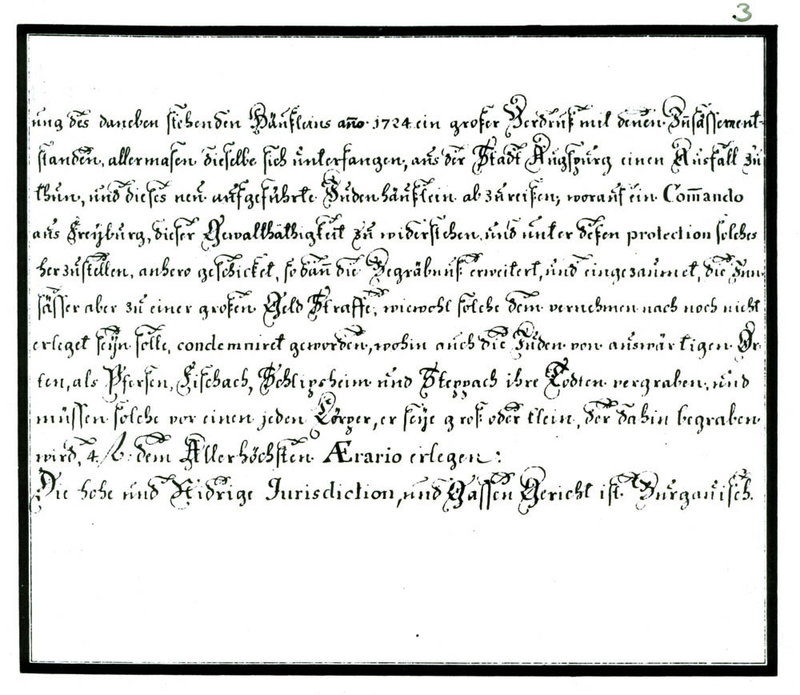 3
ung des daneben stehenden Häußleins año 1724 ein großer Verdruß mit denen Innsässen ent-
standen, allermasen dieselbe sich unterfangen, aus der Stadt Augspurg einen Ausfall zu
thun, und dieses neu aufgeführte Judenhäußlein ab zu reißen, worauf ein Com̄ando
aus Freyburg, dieser Gewaltthätigkeit zu widerstehen, und unter deßen protection solches
herzustellen, anhero geschicket, so dañ die Begräbnuß erweitert, und eingezaumet, die Inn-
sässer aber zu einer großen Geld Straffe, wiewohl solche dem vernehmen nach noch nicht
erleget seÿn solle, condemniret geworden, wohin auch die Juden von auswärtigen Or-
ten, als Pfersen, Fischach, Schlipsheim und Steppach ihre Todten vergraben, und
müssen solche vor einen jeden Cörper, er seÿe groß oder klein, der dahin begraben
wird, 4 f. dem Allerhöchsten Ærario erlegen:
Die hohe und Nidrige Jurisdiction, und Gassen Gericht ist Burgauisch.